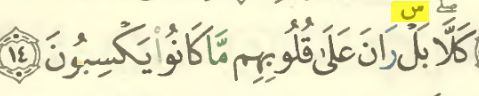 كَلَّاۖ بَلْۜ رَانَ عَلَىٰ قُلُوبِهِم مَّا كَانُوا۟ يَكْسِبُونَ ١٤